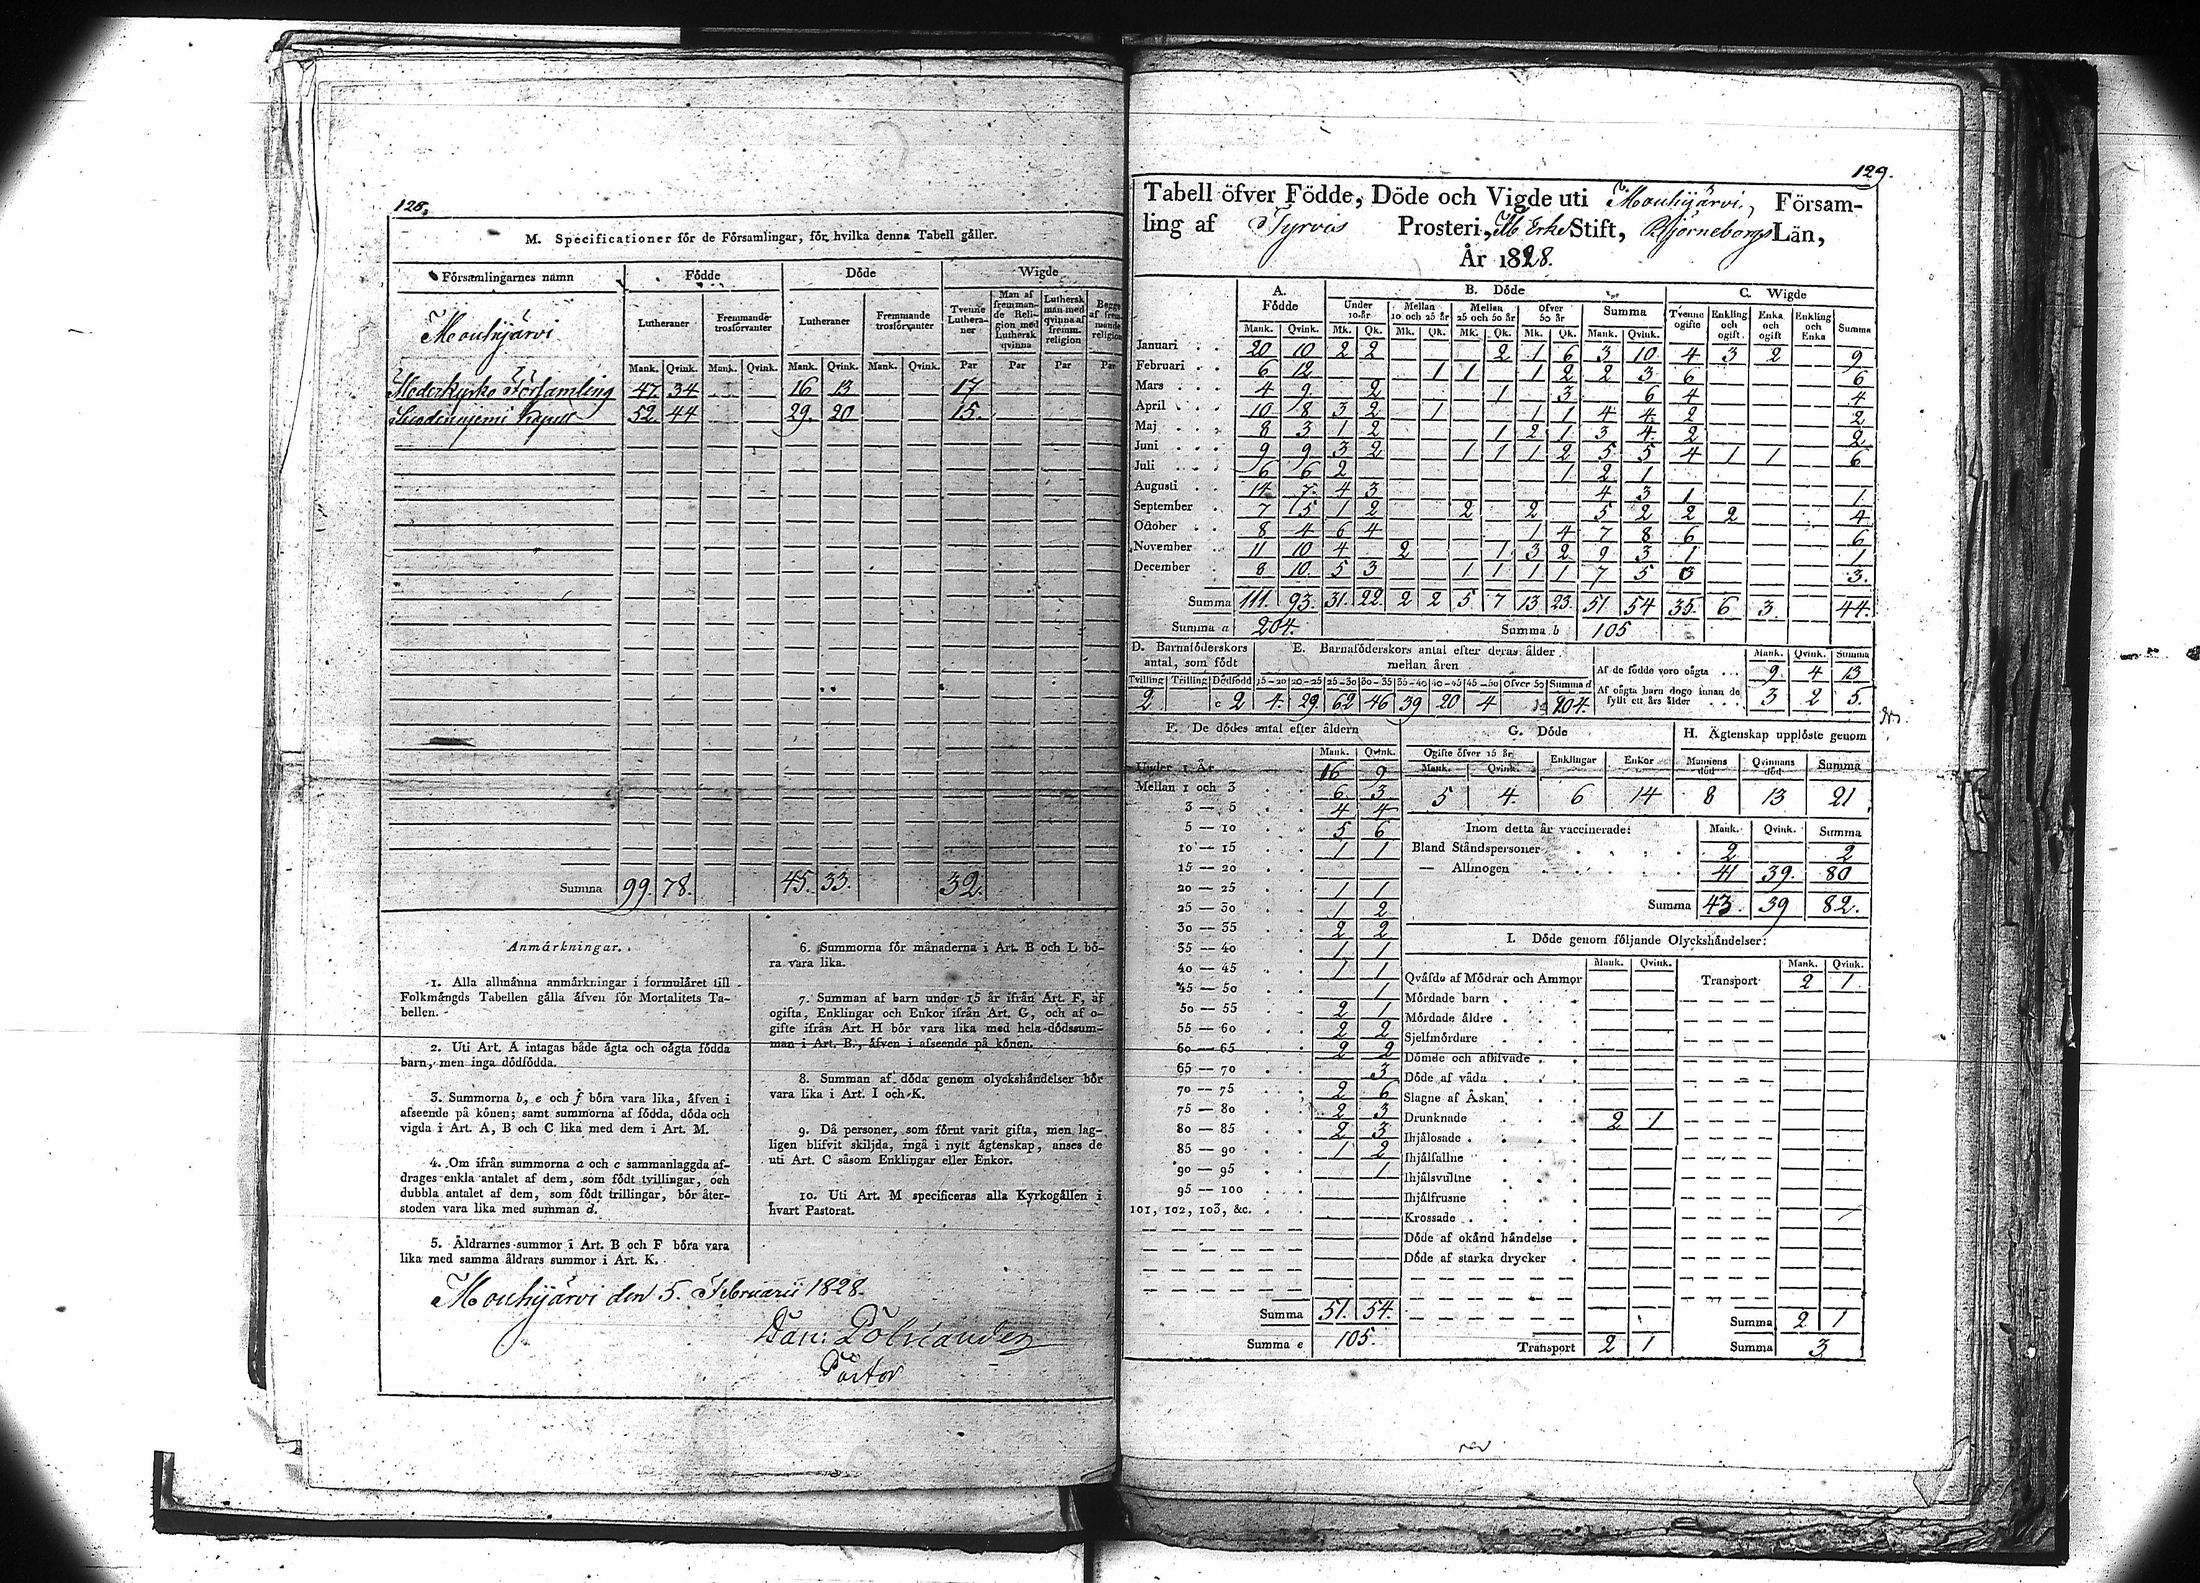 128.
M. Specificationer för de Församlingar, för hvilka denna Tabell gäller.
Församlingarnes namn Födde Döde Wigde
Lutheraner Fremmande trosförvanter Lutheraner Fremmande trosförvanter Tvenne Lutheraner Man af fremmande Religion med Luthersk qvinna Luthersk man med qvinna af fremm. religion Begge af fremmande religion
Mouhijärvi
Mank. Qvink. Mank. Qvink. Mank. Qvink. Mank. Qvink. Par Par Par Par
Moderkyrko Församling 47 34 16 13 17
Suodenniemi Capell 52 44 29. 20 15.
Summa 99. 78. 45. 33. 32.
Anmärkningar.
1. Alla allmänna anmärkningar i formuläret till
Folkmängds Tabellen gälla äfven för Mortalitets Ta-
bellen.
2. Uti Art. A intagas både ägta och oägta födda
barn, men inga dödfödda.
3. Summorna b, e och f böra vara lika, äfven i
afseende på könen; samt summorna af födda, döda och
vigda i Art. A, B och C lika med dem i Art. M.
4. Om ifrån summorna a och c sammanlaggda af-
drages enkla antalet af dem, som födt tvillingar, och
dubbla antalet af dem, som födt trillingar, bör åter-
stoden vara lika med summan d.
5. Äldrarnes summor i Art. B och F böra vara
lika med samma äldrars summor i Art. K.
6. Summorna för månaderna i Art. B och L bö-
ra vara lika.
7. Summan af barn under 15 år ifrån Art. F, af
ogifta, Enklingar och Enkor ifrån Art. G, och af o-
gifte ifrån Art. H bör vara lika med hela dödssum-
man i Art. B., äfven i afseende på könen.
8. Summan af döda genom olyckshändelser bör
vara lika i Art. I och K.
9. Då personer, som förut varit gifta, men lag-
ligen blifvit skiljda, ingå i nytt ägtenskap, anses de
uti Art. C såsom Enklingar eller Enkor.
10. Uti Art. M specificeras alla Kyrkogällen i
hvart Pastorat.
Mouhijärvi den 5. Februarii 1828.
Dan: Polviander
Pastor
129.
Tabell öfver Födde, Döde och Vigde uti Mouhijärvi, Försam-
ling af Tyrvis Prosteri, Erke Stift, Björneborgs Län,
År 1828.
A. Födde B. Döde C. Wigde
Under 10 år Mellan 10 och 25 år Mellan 25 och 50 år Öfver 50 år Summa Tvenne ogifte Enkling och ogift Enka och ogift Enkling och Enka Summa
Mank. Qvink. Mk. Qk. Mk. Qk. Mk. Qk. Mk. Qk. Mank. Qvink.
Januari 20 10 2 2 2 1 6 3 10 4 3 2 9
Februari 6 12 1 1 1 2 2 3 6 6
Mars 4 9 2 1 3 6 4 4
April 10 8 3 2 1 1 1 4 4 2 2
Maj 8 3 1 2 1 2 1 3 4 2 2
Juni 9 9 3 2 1 1 1 2 5 5 4 1 1 6
Juli 6 6 2 1 2 1
Augusti 14 7 4 3 4 3 1 1
September 7 5 1 2 2 2 5 2 2 2 4
October 8 4 6 4 1 4 7 8 6 6
November 11 10 4 2 1 3 2 9 3 1 1
December 8 10. 5 3 1 1 1 1 7 5 3 3.
Summa 111. 93. 31. 22. 2 2 5 7 13 23. 51. 54 35. 6 3. 44.
Summa a 204. Summa b 105
D. Barnaföderskors antal, som födt
Tvilling Trilling Dödfödd
2 c 2
E. Barnaföderskors antal efter deras ålder mellan åren
15-20 20-25 25-30 30-35 35-40 40-45 45-50 öfver 50 Summa d
4. 29 62 46 39 20 4 204.
Mank. Qvink. Summa
Af de födde voro oägta 9 4 13
Af oägta barn dogo innan de fyllt ett års ålder 3 2 5.
F. De dödes antal efter åldern
Mank. Qvink.
Under 1 År 16 9
Mellan 1 och 3 6 3
3 — 5 4 4
5 — 10 5 6
10 — 15 1 1
15 — 20
20 — 25 1 1
25 — 30 1 2
30 — 35 2 2
35 — 40 1 1
40 — 45 1 1
45 — 50 1
50 — 55 2 1
55 — 60 2 2
60 — 65 2 2
65 — 70 3
70 — 75 2 6
75 — 80 2 3
80 — 85 2 3
85 — 90 1 2
90 — 95 1
95 — 100
101, 102, 103, &c.
Summa 51. 54.
Summa e 105.
G. Döde
Ogifte öfver 15 år Enklingar Enkor
Mank. Qvink.
5 4 6 14
H. Ägtenskap upplöste genom
Mannens död Qvinnans död Summa
8 13 21
Inom detta år vaccinerade: Mank. Qvink. Summa
Bland Ståndspersoner 2 2
— Allmogen 41 39. 80
Summa 43. 39 82.
I. Döde genom följande Olyckshändelser:
Mank. Qvink. Mank. Qvink.
Qväfde af Mödrar och Ammor Transport 2 1
Mördade barn
Mördade äldre
Sjelfmördare
Dömde och aflifvade
Döde af våda
Slagne af Åskan
Drunknade 2 1
Ihjälosade
Ihjälfallne
Ihjälsvultne
Ihjälfrusne
Krossade
Döde af okänd händelse
Döde af starka drycker
Summa 2 1
Transport 2 1 Summa 3